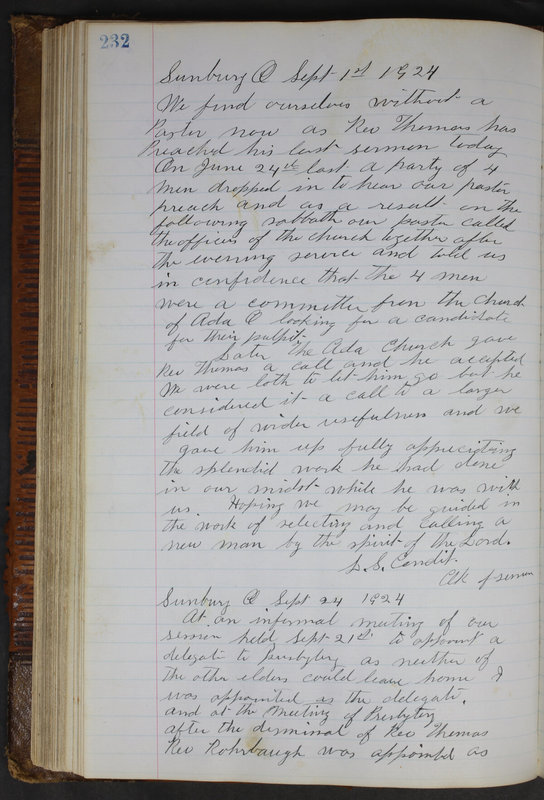 232
Sunbury O Sept 1st 1924
We find ourselves without a
Pastor now as Rev Thomas has
Preached his last sermon today
On June 24th last a party of 4
men dropped in to hear our pastor
preach and as a result on the
following sabbath our pastor called
the officers of the church together after
the evening service and told us
in confidence that the 4 men
were a committee from the church
of Ada O looking for a candidate
for their pulpit.
Later the Ada Church gave
Rev Thomas a call and he accepted
We were loth to let him go but he
considered it a call to a larger
field of wider usefulness and we
gave him up fully appreciating
the splendid work he had done
in our midst while he was with
us. Hoping we may be guided in
the work of selecting and calling a
new man by the spirit of the Lord.
S. S. Condit.
Clk of session
Sunbury O Sept 24 1924
At an informal meeting of our
session held Sept 21st to appoint a
delegate to Presbytery as neither of
the other elders could leave home I
was appointed as the delegate.
and at the Meeting of Presbytery
after the dismissal of Rev Thomas
Rev Rohrbaugh was appointed as